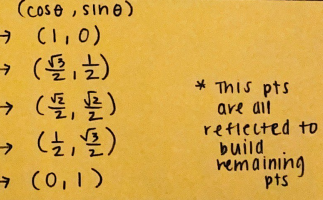 (cosθ, sinθ)
→ (1, 0)
→ (√3/2, 1/2)
→ (√2/2, √2/2)
→ (1/2, √3/2)
→ (0, 1)
* This pts
are all
reflected to
build
remaining
pts